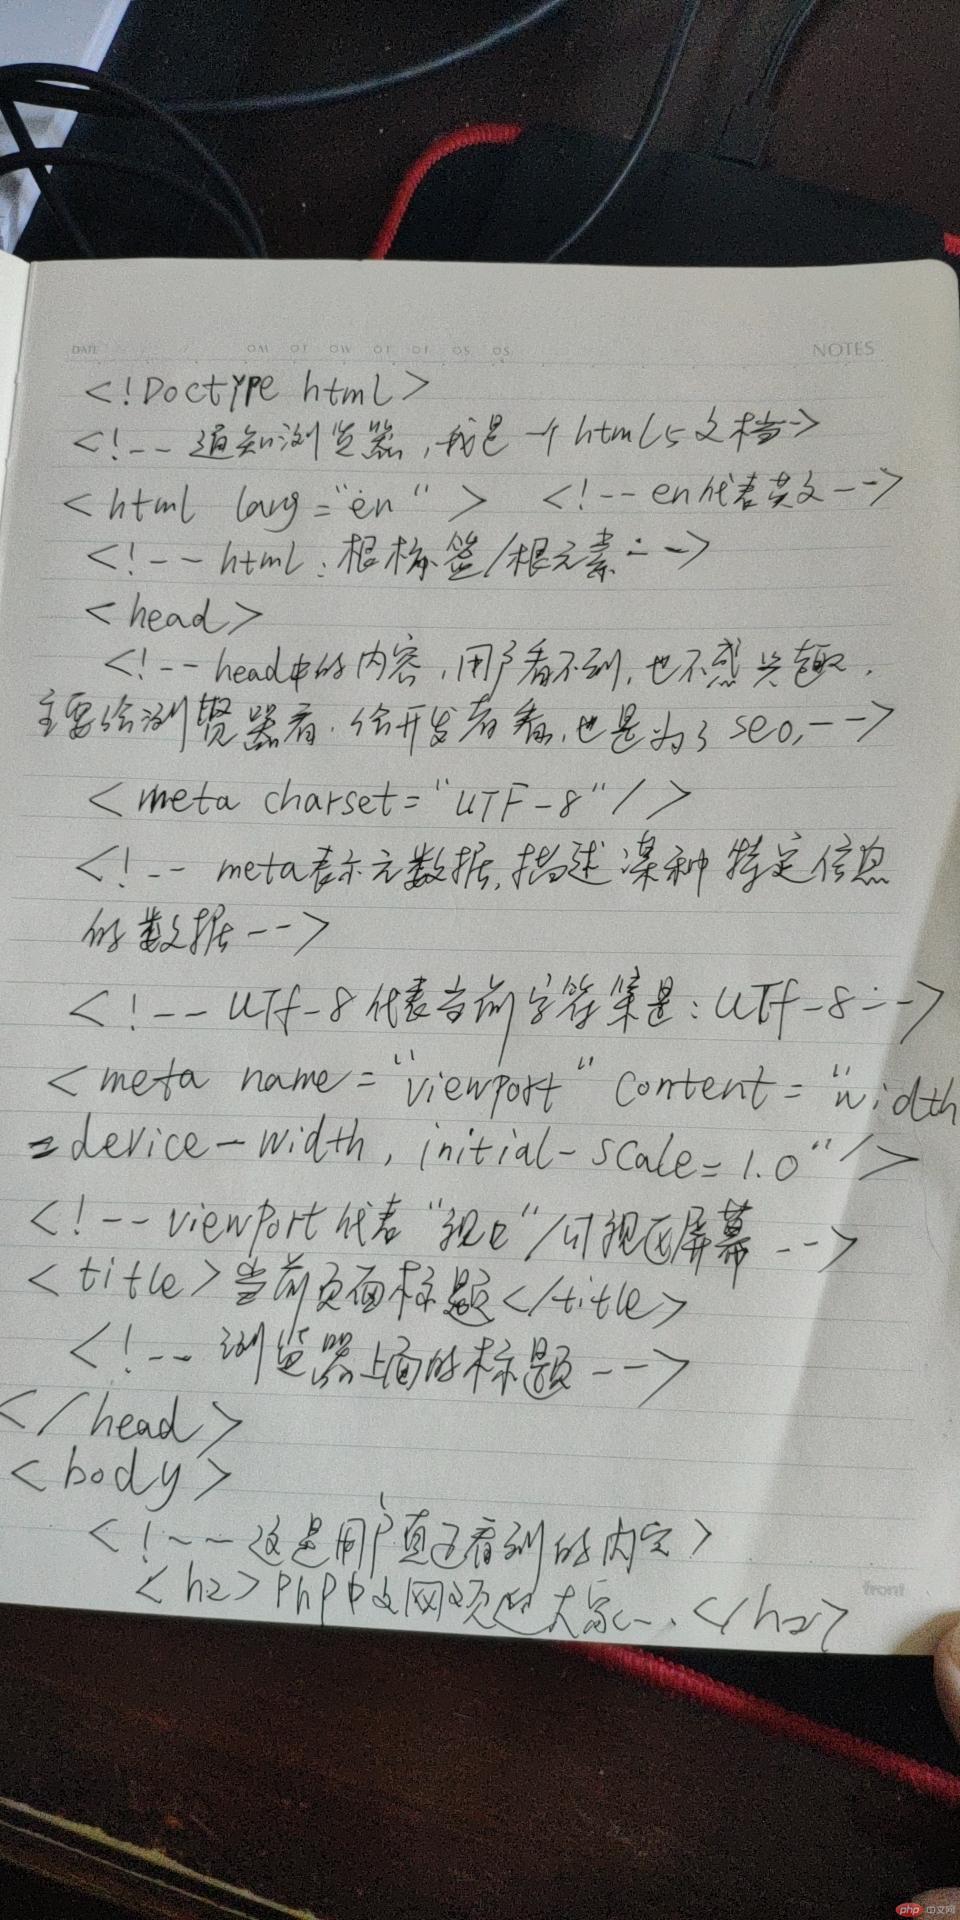 DATE OM OT OW OT OF OS OS NOTES
<!Doctype html>
<!-- 通知浏览器,我是一个html5文档->
<html lang="en"> <!--en代表英文-->
<!--html:根标签/根元素-->
<head>
<!--head中的内容,用户看不到,也不感兴趣,
主要给浏览器看,给开发者看,也是为了seo,-->
<meta charset="UTF-8"/>
<!-- meta表示元数据,描述某种特定信息
的数据-->
<!--UTf-8代表当前字符集是:UTf-8-->
<meta name="viewport" content="width
=device-width, initial-scale=1.0"/>
<!--viewport代表"视口"/可视区屏幕-->
<title>当前页面标题</title>
<!-- 浏览器上面的标题-->
</head>
<body>
<!--这是用户真正看到的内容>
<h2>PhP中文网欢迎大家 </h2>
front
php 中文网